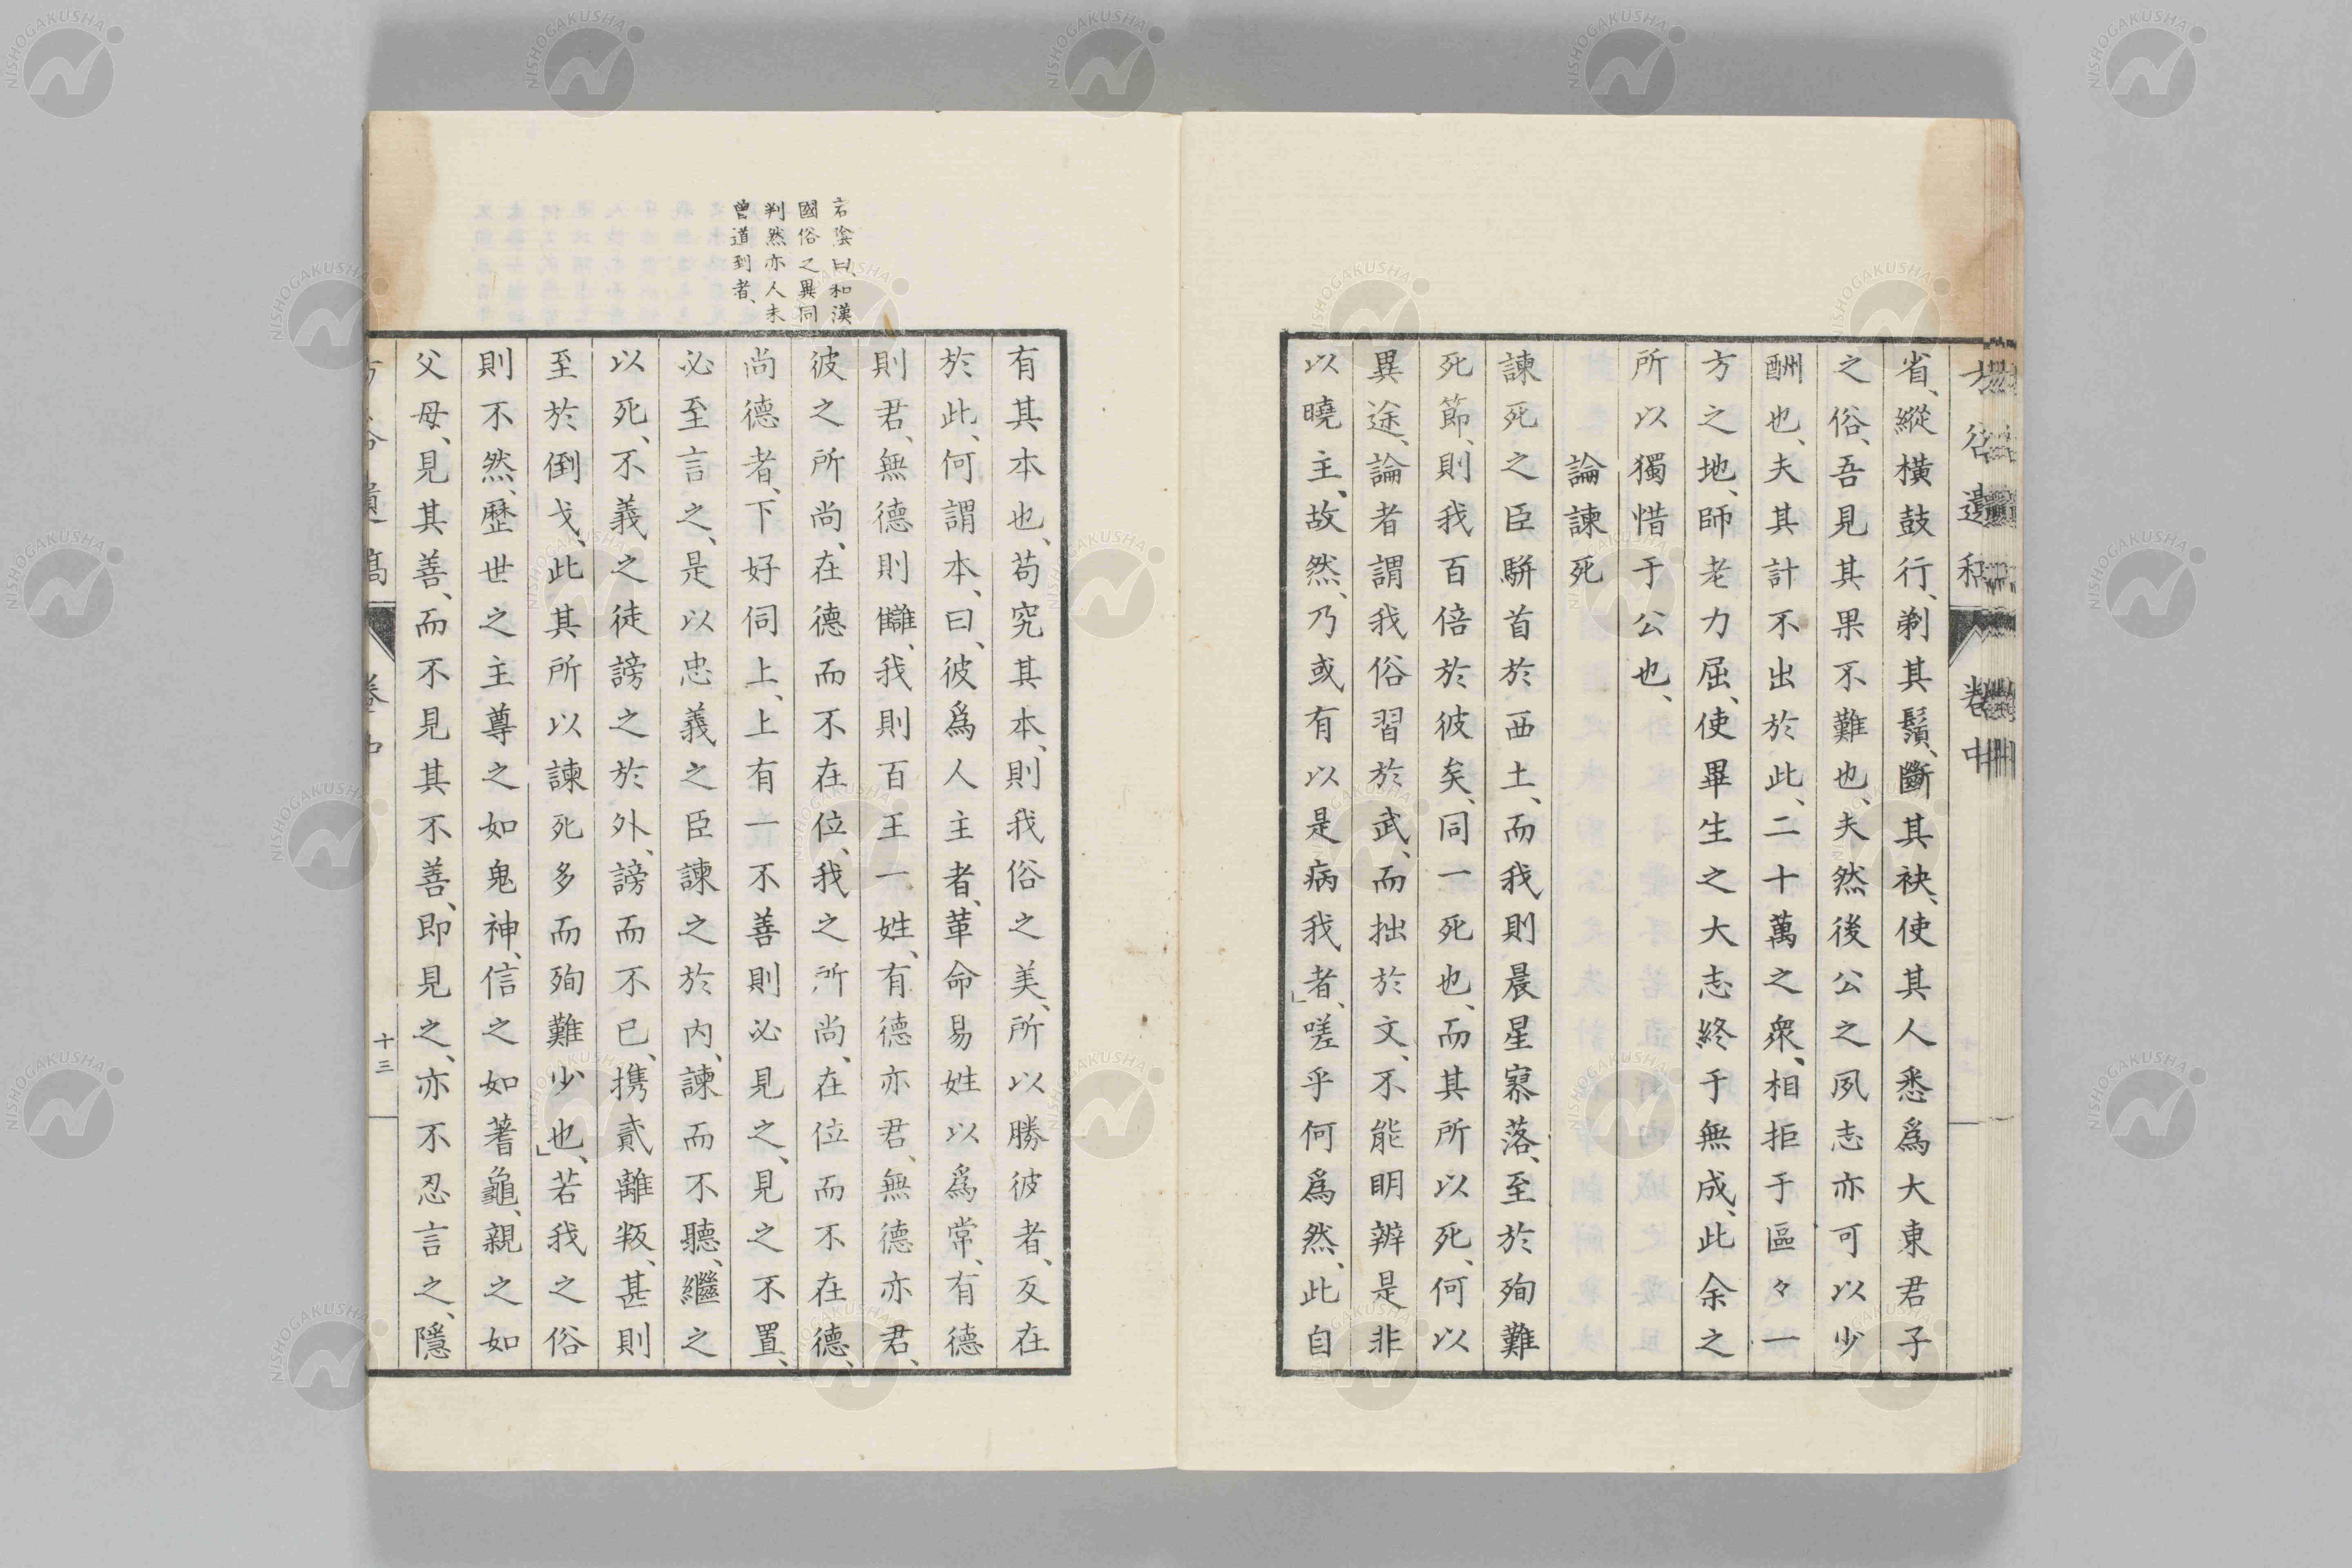 省、縱橫鼓行、剃其鬚、斷其袂、使其人悉爲大東君子
之俗、吾見其果不難也、夫然後公之夙志亦可以少
酬也、夫其計不出於此、二十萬之衆、相拒于區々一
方之地、師老力屈、使畢生之大志終于無成、此余之
所以獨惜于公也、
論諫死
諫死之臣駢首於西土、而我則晨星寥落、至於殉難
死節、則我百倍於彼矣、同一死也、而其所以死、何以
異途、論者謂我俗習於武、而拙於文、不能明辨是非
以曉主、故然、乃或有以是病我者、」嗟乎何爲然、此自
有其本也、苟究其本、則我俗之美、所以勝彼者、反在
於此、何謂本、曰、彼爲人主者、革命易姓以爲常、有德
則君、無德則讎、我則百王一姓、有德亦君、無德亦君、
彼之所尚、在德而不在位、我之所尚、在位而不在德、
尚德者、下好伺上、上有一不善則必見之、見之不置、
必至言之、是以忠義之臣諫之於內、諫而不聽、繼之
以死、不義之徒謗之於外、謗而不已、携貳離叛、甚則
至於倒戈、此其所以諫死多而殉難少也、」若我之俗
則不然、歷世之主尊之如鬼神、信之如蓍龜、親之如
父母、見其善、而不見其不善、即見之、亦不忍言之、隱
卷中
十三
卷中
石陰曰、和漢
國俗之異同
判然亦人未
曾道到者、
NISHOGAKUSHA